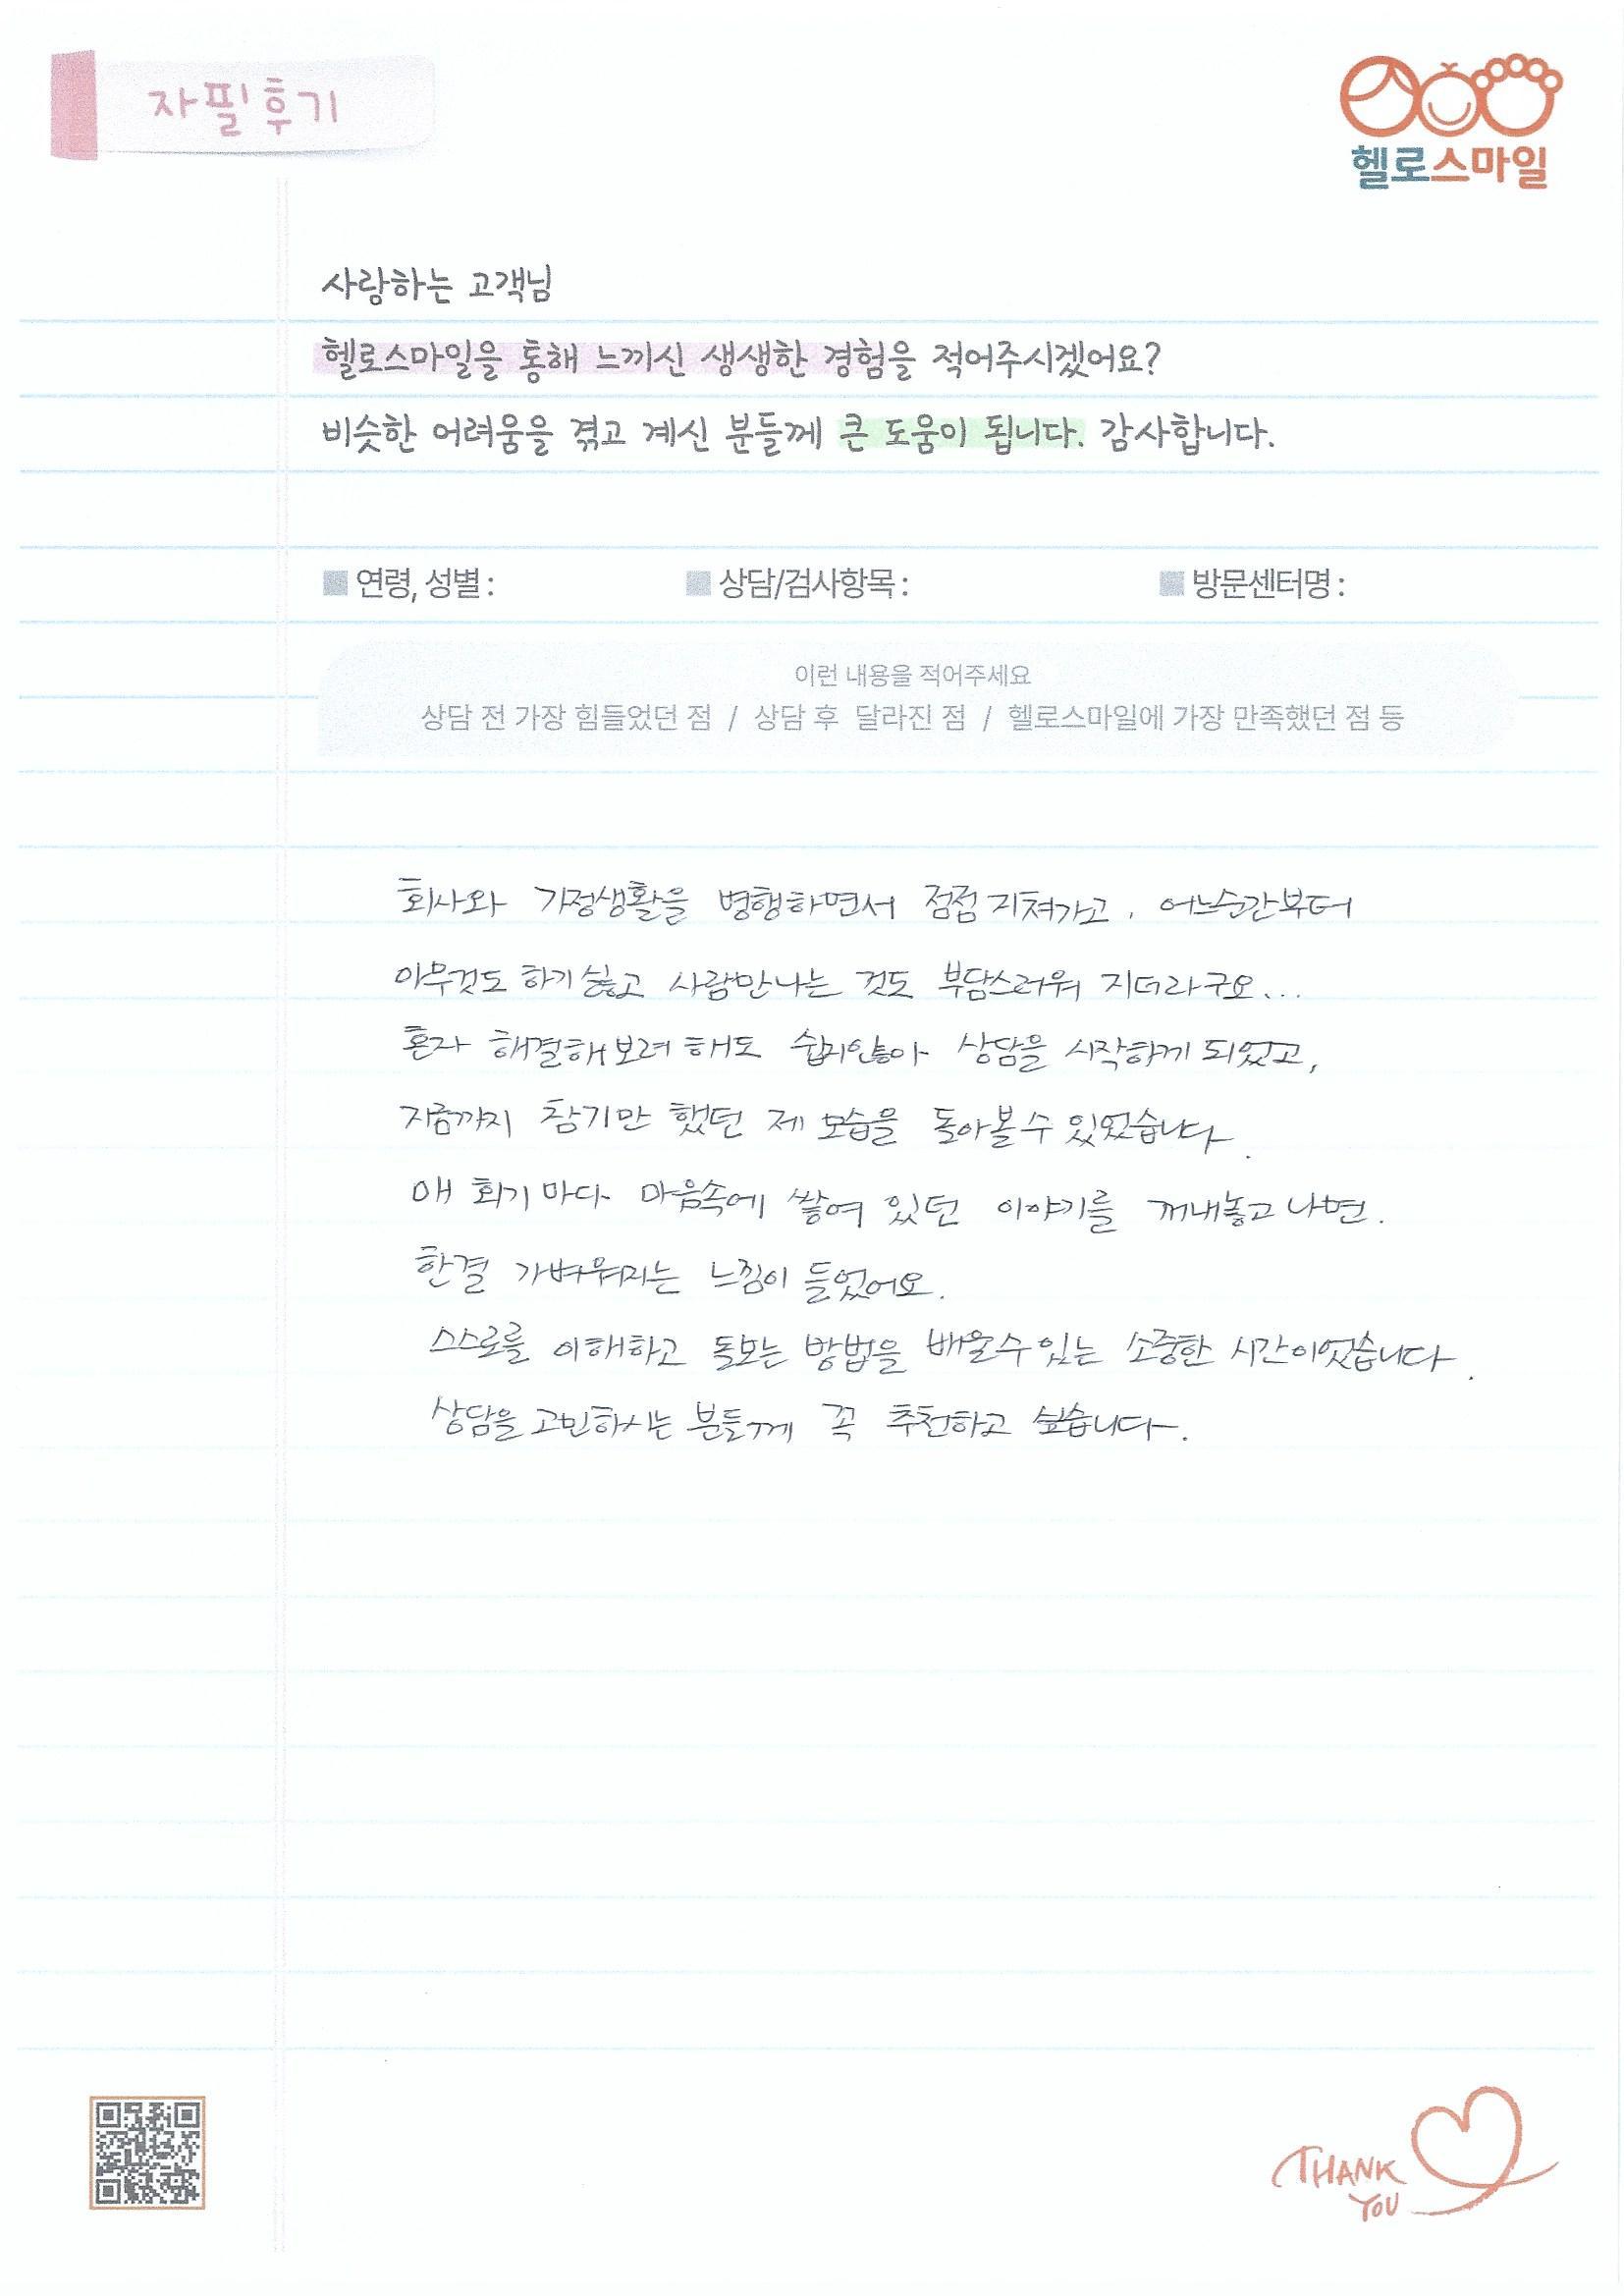 자필후기
헬로스마일
사랑하는 고객님
헬로스마일을 통해 느끼신 생생한 경험을 적어주시겠어요?
비슷한 어려움을 겪고 계신 분들께 큰 도움이 됩니다. 감사합니다.
■ 연령, 성별 : ■ 상담/검사항목 : ■ 방문센터명 :
이런 내용을 적어주세요
상담 전 가장 힘들었던 점 / 상담 후 달라진 점 / 헬로스마일에 가장 만족했던 점 등
회사와 가정생활을 병행하면서 점점 지쳐가고, 어느순간부터
아무것도 하기 싫고 사람만나는 것도 부담스러워 지더라구요...
혼자 해결해보려 해도 쉽지않아 상담을 시작하게 되었고,
지금까지 참기만 했던 제 모습을 돌아볼수 있었습니다.
매 회기 마다 마음속에 쌓여 있던 이야기를 꺼내놓고 나면.
한결 가벼워지는 느낌이 들었어요.
스스로를 이해하고 돌보는 방법을 배울수있는 소중한 시간이었습니다.
상담을 고민하시는 분들께 꼭 추천하고 싶습니다.
THANK
YOU